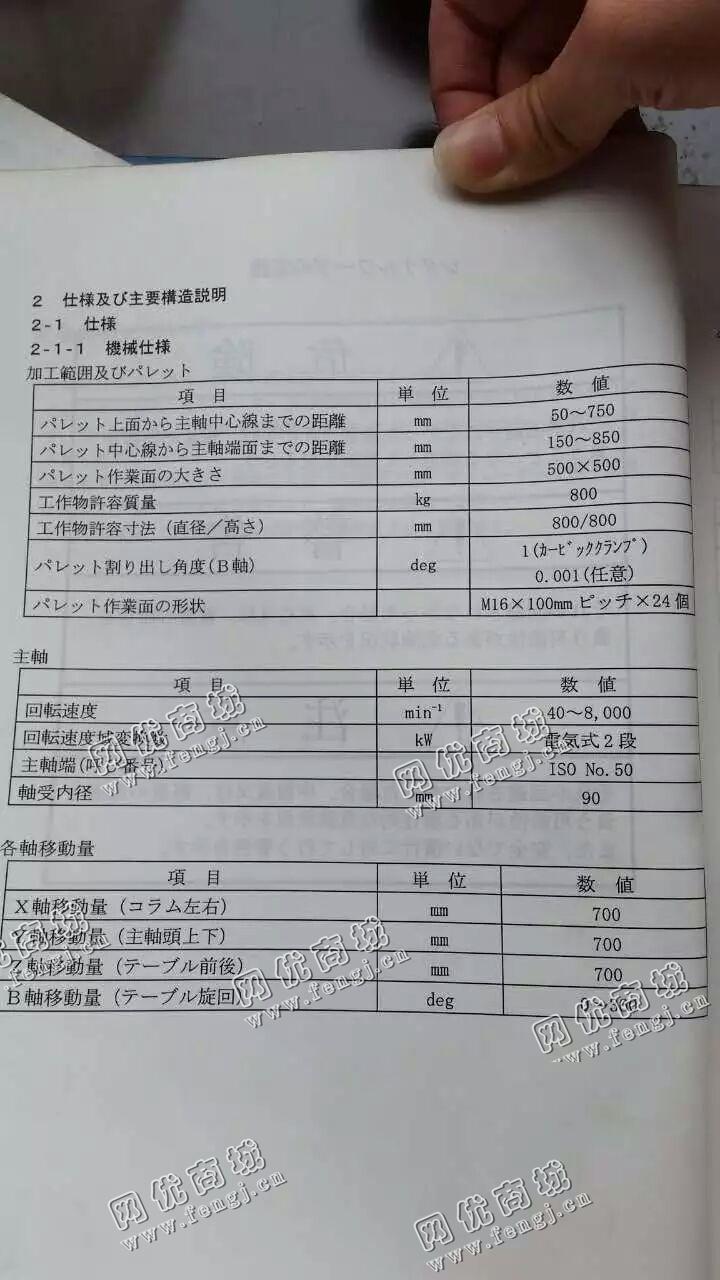 2 仕様及び主要構造説明
2-1 仕様
2-1-1 機械仕様
加工範囲及びパレット
項 目 単 位 数 値
パレット上面から主軸中心線までの距離 mm 50～750
パレット中心線から主軸端面までの距離 mm 150～850
パレット作業面の大きさ mm 500×500
工作物許容質量 kg 800
工作物許容寸法(直径／高さ) mm 800/800
パレット割り出し角度(B軸) deg 1(ｶｰﾋﾞｯｸｸﾗﾝﾌﾟ)
0.001(任意)
パレット作業面の形状 M16×100mmピッチ×24個
主軸
項 目 単 位 数 値
回転速度 min⁻¹ 40～8,000
回転速度域変換数 kW 電気式2段
主軸端(呼び番号) ISO No.50
軸受内径 mm 90
各軸移動量
項 目 単 位 数 値
X軸移動量(コラム左右) mm 700
Y軸移動量(主軸頭上下) mm 700
Z軸移動量(テーブル前後) mm 700
B軸移動量(テーブル旋回) deg 0～360
网优商城
www.fengj.cn
网优商城
www.fengj.cn
网优商城
www.fengj.cn
网优商城
www.fengj.cn
网优商城
www.fengj.cn
网优商城
www.fengj.cn
网优商城
www.fengj.cn